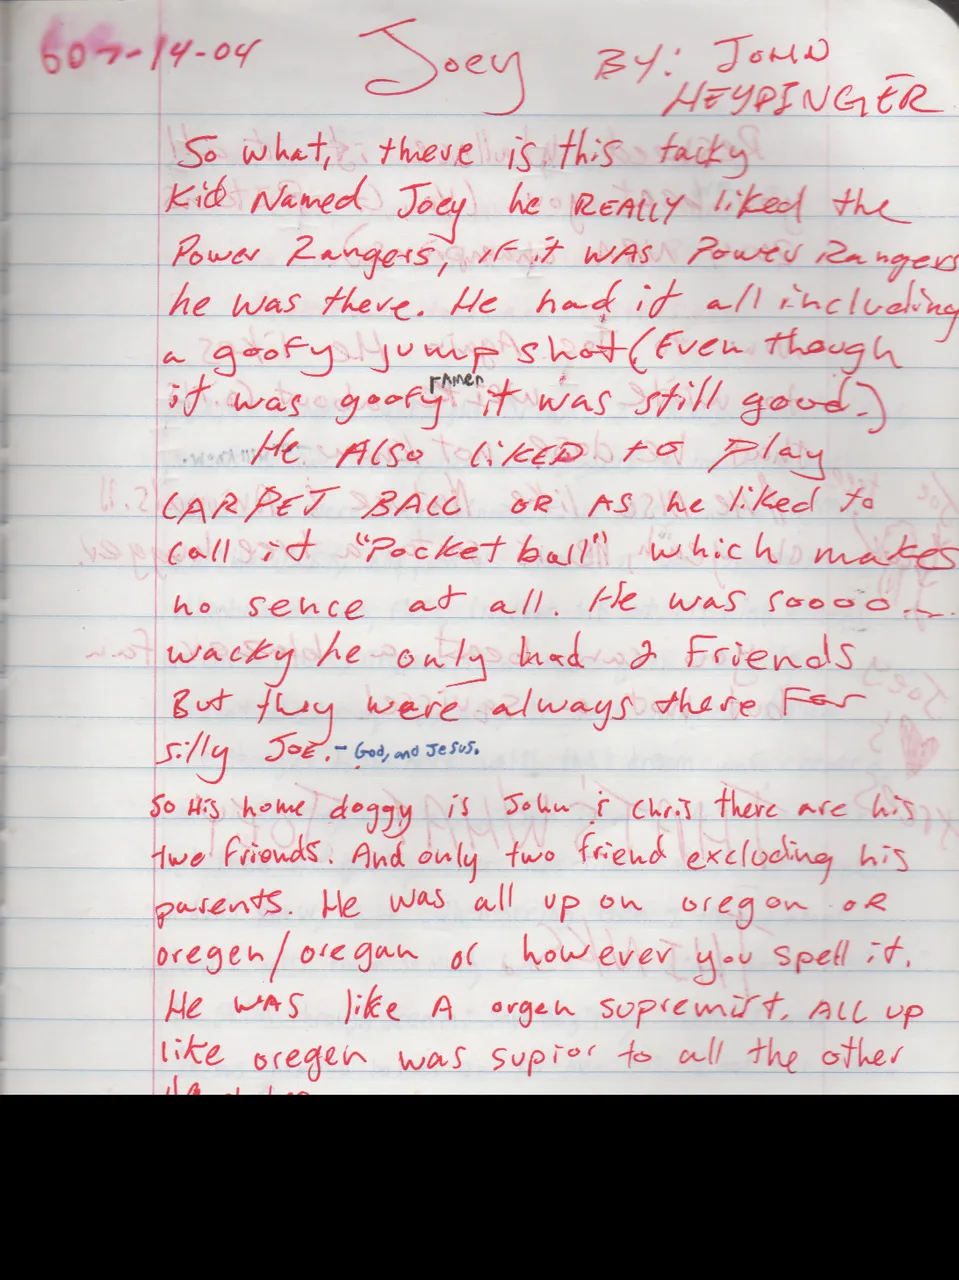 7-14-04 Joey BY: JOHN
HEYPINGER
So what, there is this tacky
Kid Named Joey he REALLY liked the
Power Rangers, if it WAS Power Rangers
he was there. He had it all including
a goofy jump shot (Even though
ramen
it was goofy it was still good.)
He ALSO LIKED to Play
CARPET BALL OR AS he liked to
call it "Pocket ball" which makes
no sence at all. He was soooo
wacky he only had 2 Friends
But they were always there For
silly JOE. - God, and Jesus.
So His home doggy is John & Chris there are his
two friends. And only two friend excluding his
parents. He was all up on oregon or
oregen/oregan or however you spell it.
He WAS like A orgen supremist. ALL up
like oregen was supior to all the other